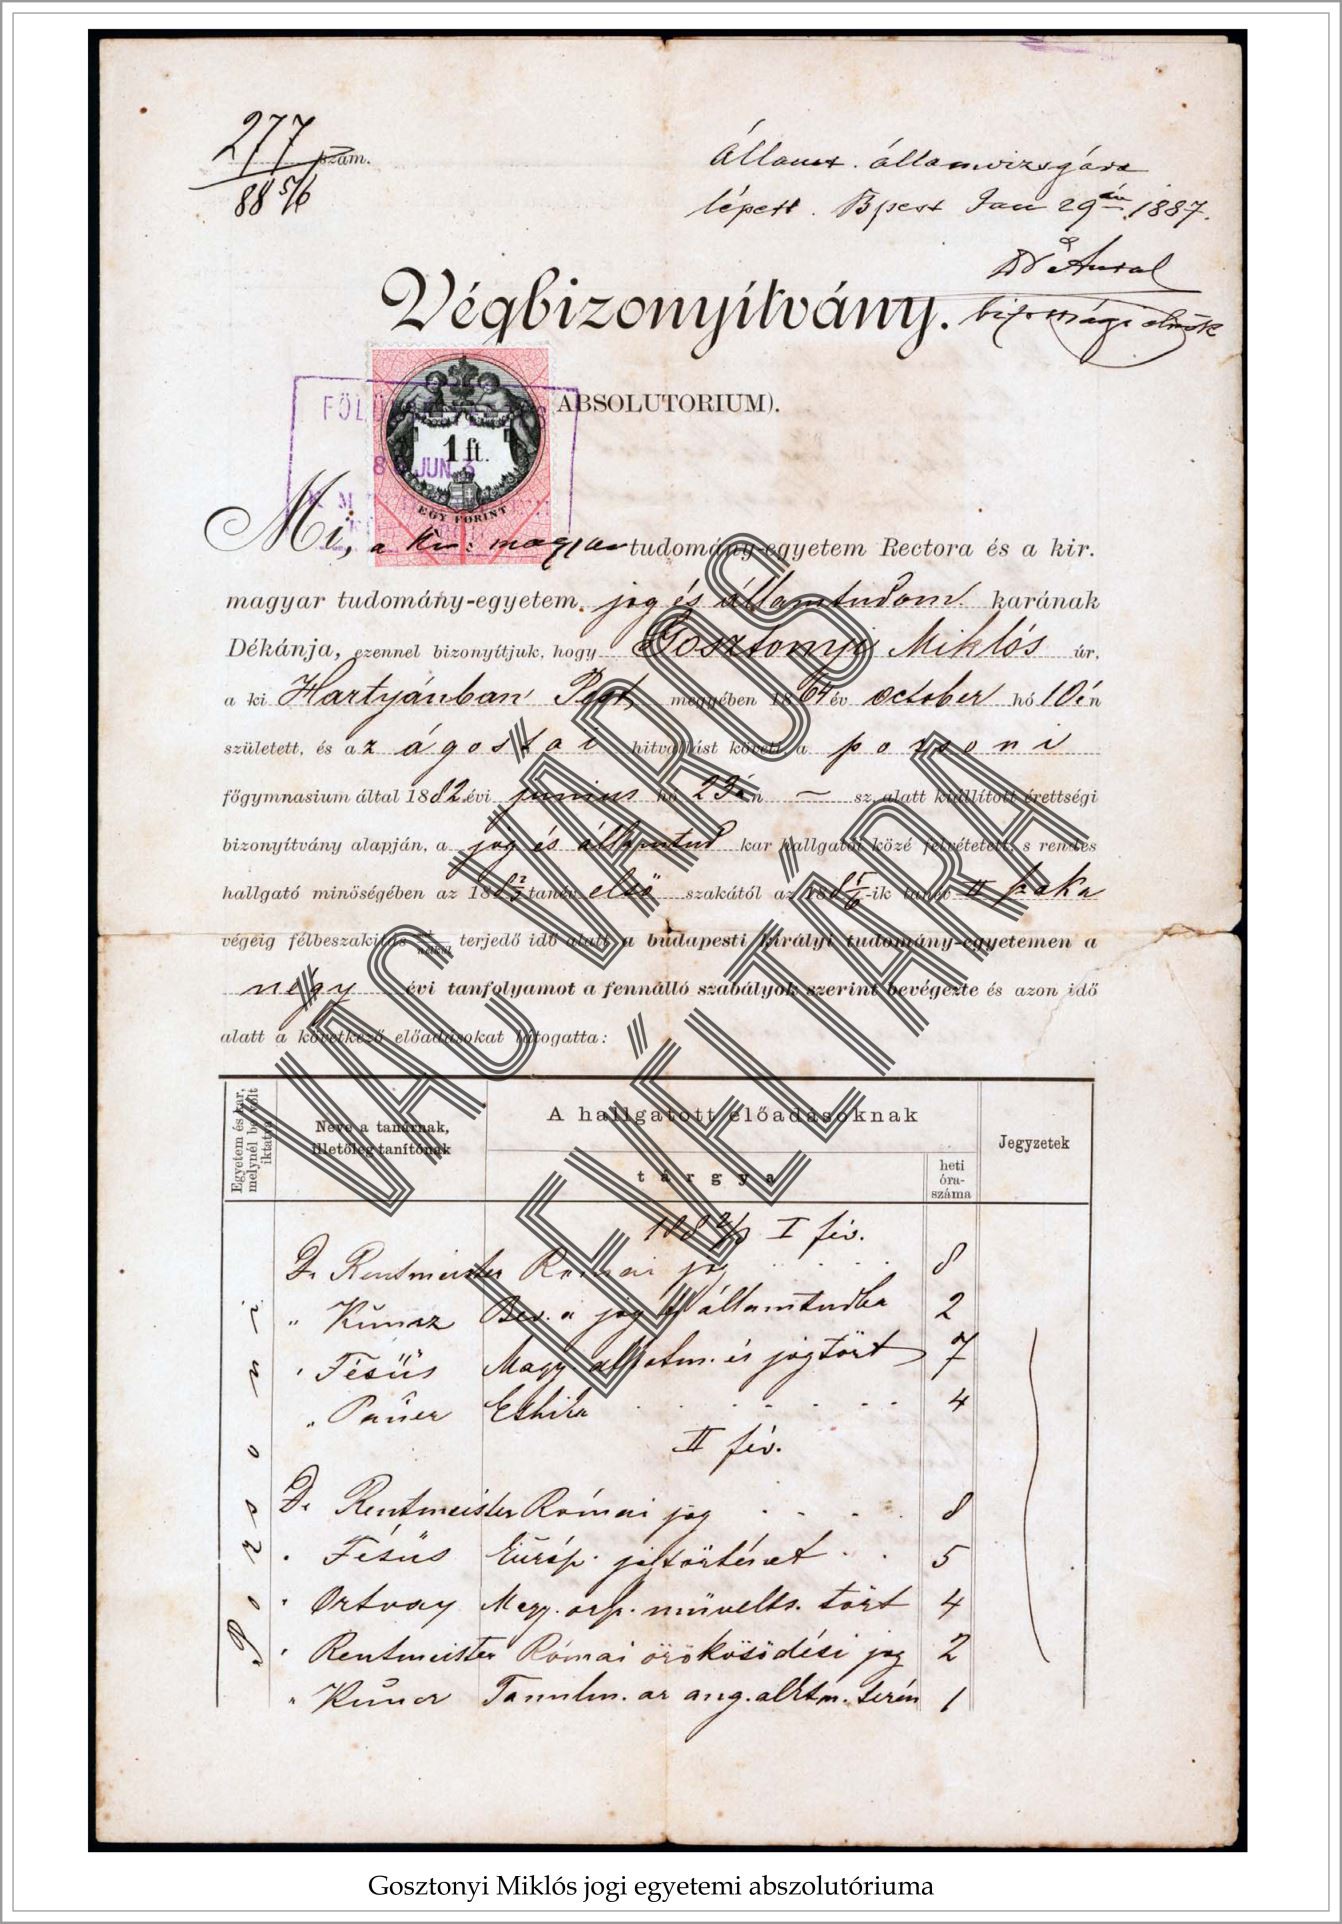 277 szám.
885/6
Állam. államvizsgára
lépett. Bpest Jan 29én 1887.
Dr
bizottsági elnök
Végbizonyítvány.
ABSOLUTORIUM).
FÖL
1 ft.
8 JUN
EGY FORINT
Mi, a kir: magyar tudomány-egyetem Rectora és a kir.
magyar tudomány-egyetem jog és államtudom. karának
Dékánja, ezennel bizonyítjuk, hogy Gosztonyi Miklós úr,
a ki Hartyánban Pest megyében 1864 év october hó 10én
született, és az ágostai hitvallást követi, a pozsoni
főgymnasium által 1882 évi junius hó 23án — sz. alatt kiállított érettségi
bizonyítvány alapján, a jog és államtud kar hallgatói közé felvétetett, s rendes
hallgató minőségében az 1882/3 tanév első szakától az 1885/6-ik tanév II szaka
végeig félbeszakítás nélkül terjedő idő alatt a budapesti királyi tudomány-egyetemen a
négy évi tanfolyamot a fennálló szabályok szerint bevégezte és azon idő
alatt a következő előadásokat látogatta:
Egyetem és kar, melynél be volt iktatva
Neve a tanárnak, illetőleg tanítónak
A hallgatott előadásoknak
tárgya
heti óra-száma
Jegyzetek
Pozsoni
1882/3 I fév.
Dr Rentmeister Római jog 8
" Kuncz Bev. a jog és államtudba 2
" Fésüs Magy. alkotm. és jogtört 7
" Pauer Ethika 4
II fév.
Dr Rentmeister Római jog 8
" Fésüs Európ. jogtörténet 5
" Ortvay Magy. orsz. müvelts. tört 4
" Rentmeister Római örökösödési jog 2
" Kuncz Tanulm. az ang. alktm. terén 1
VÁC VÁROS
LEVÉLTÁRA
Gosztonyi Miklós jogi egyetemi abszolutóriuma